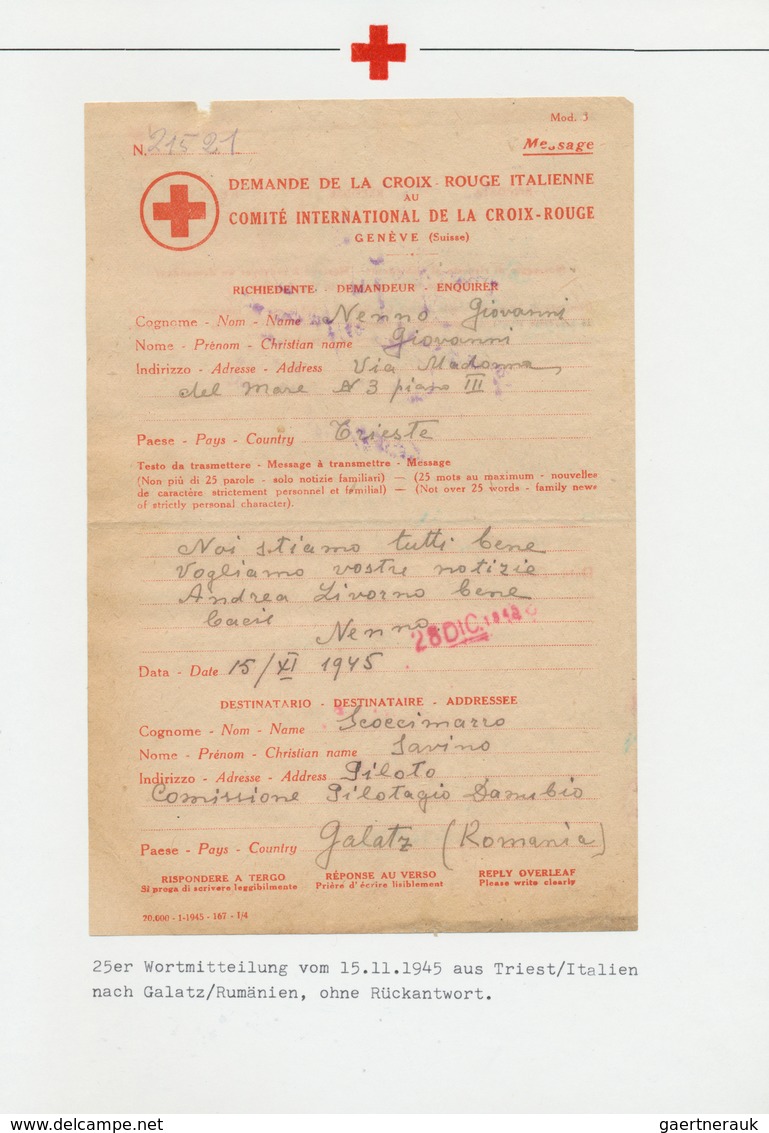 Mod. 3
N. 21521
Message
DEMANDE DE LA CROIX-ROUGE ITALIENNE
AU
COMITÉ INTERNATIONAL DE LA CROIX-ROUGE
GENÈVE (Suisse)
RICHIEDENTE - DEMANDEUR - ENQUIRER
Cognome - Nom - Name Nenno Giovanni
Nome - Prénom - Christian name Giovanni
Indirizzo - Adresse - Address Via Madonna
del Mare N 3 piano III
Paese - Pays - Country Trieste
Testo da trasmettere - Message à transmettre - Message
(Non più di 25 parole - solo notizie familiari) — (25 mots au maximum - nouvelles
de caractère strictement personnel et familial) — (Not over 25 words - family news
of strictly personal character).
Noi stiamo tutti bene
Vogliamo vostre notizie
Andrea Livorno bene
Baci
Nenno
28 DIC.
Data - Date 15/XI 1945
DESTINATARIO - DESTINATAIRE - ADDRESSEE
Cognome - Nom - Name Scoccimarro
Nome - Prénom - Christian name Savino
Indirizzo - Adresse - Address Piloto
Comissione Pilotagio Danubio
Paese - Pays - Country Galatz (Romania)
RISPONDERE A TERGO RÉPONSE AU VERSO REPLY OVERLEAF
Si proga di scrivere leggibilmente Prière d'écrire lisiblement Please write clearly
70.000 - 1-1945 - 167 - 1/4
25er Wortmitteilung vom 15.11.1945 aus Triest/Italien
nach Galatz/Rumänien, ohne Rückantwort.
www.delcampe.net
gaertnerauk